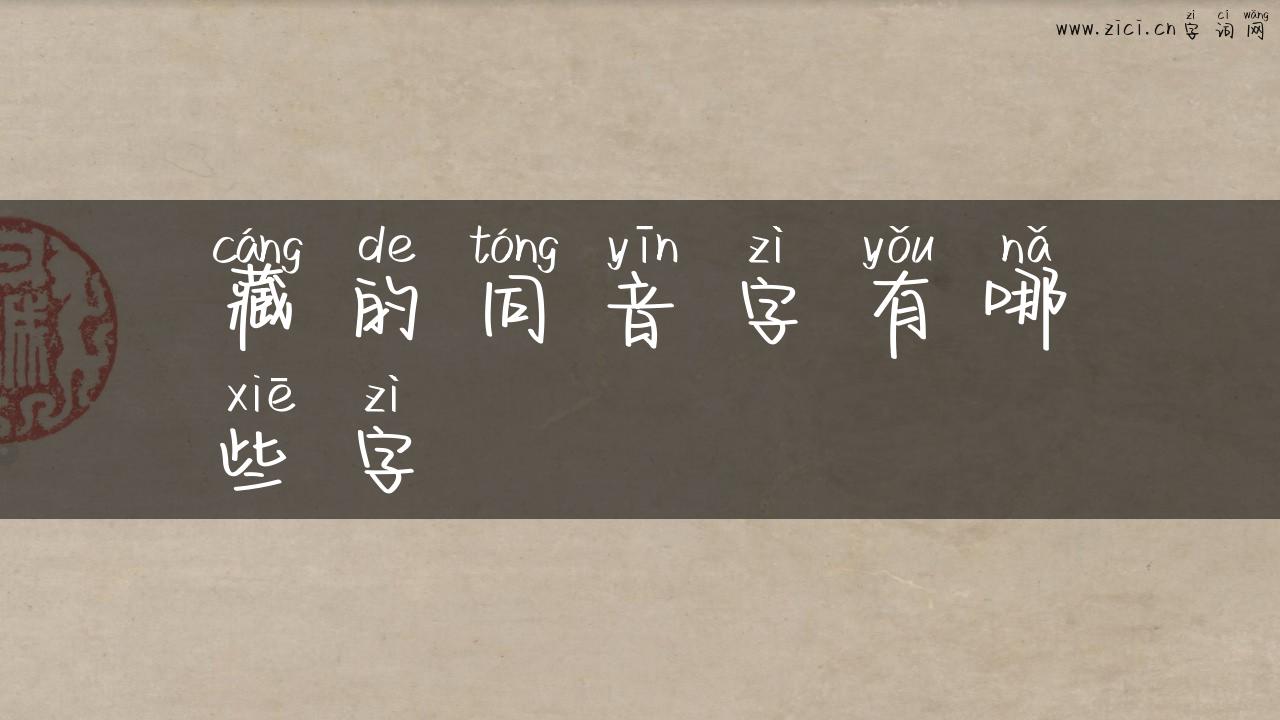 zì cí wǎng
www.zici.cn 字 词 网
cáng de tóng yīn zì yǒu nǎ
藏 的 同 音 字 有 哪
xiē zì
些 字